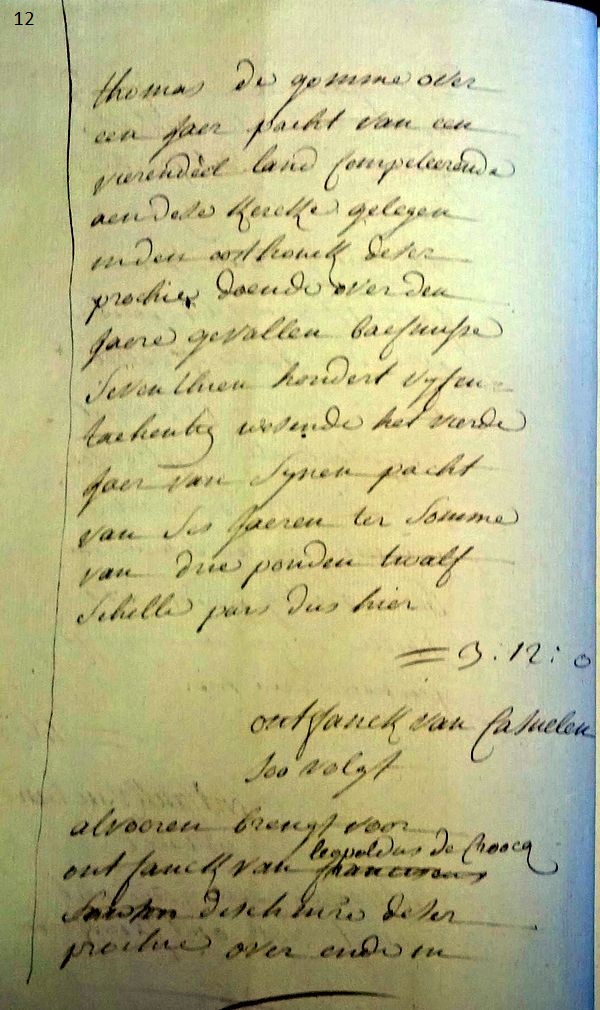 12
thomas de gomme over
een Jaer pacht van een
vierendeel land Competeerende
aen dese kercke gelegen
inden oosthouck deser
prochie, doende over den
Jaere gevallen baefmisse
Seventhien hondert vyfen=
tachentig wesende het vierde
Jaer van Synen pacht
van ses Jaeren ter Somme
van drie ponden twalf
Schelle pars dus hier
= 3:12:0
ontfanck van Casuelen
soo volgt
alvooren brengt voor
leopoldus de Croocq
ontfanck van franciscus
discheure deser
prochie over ende in